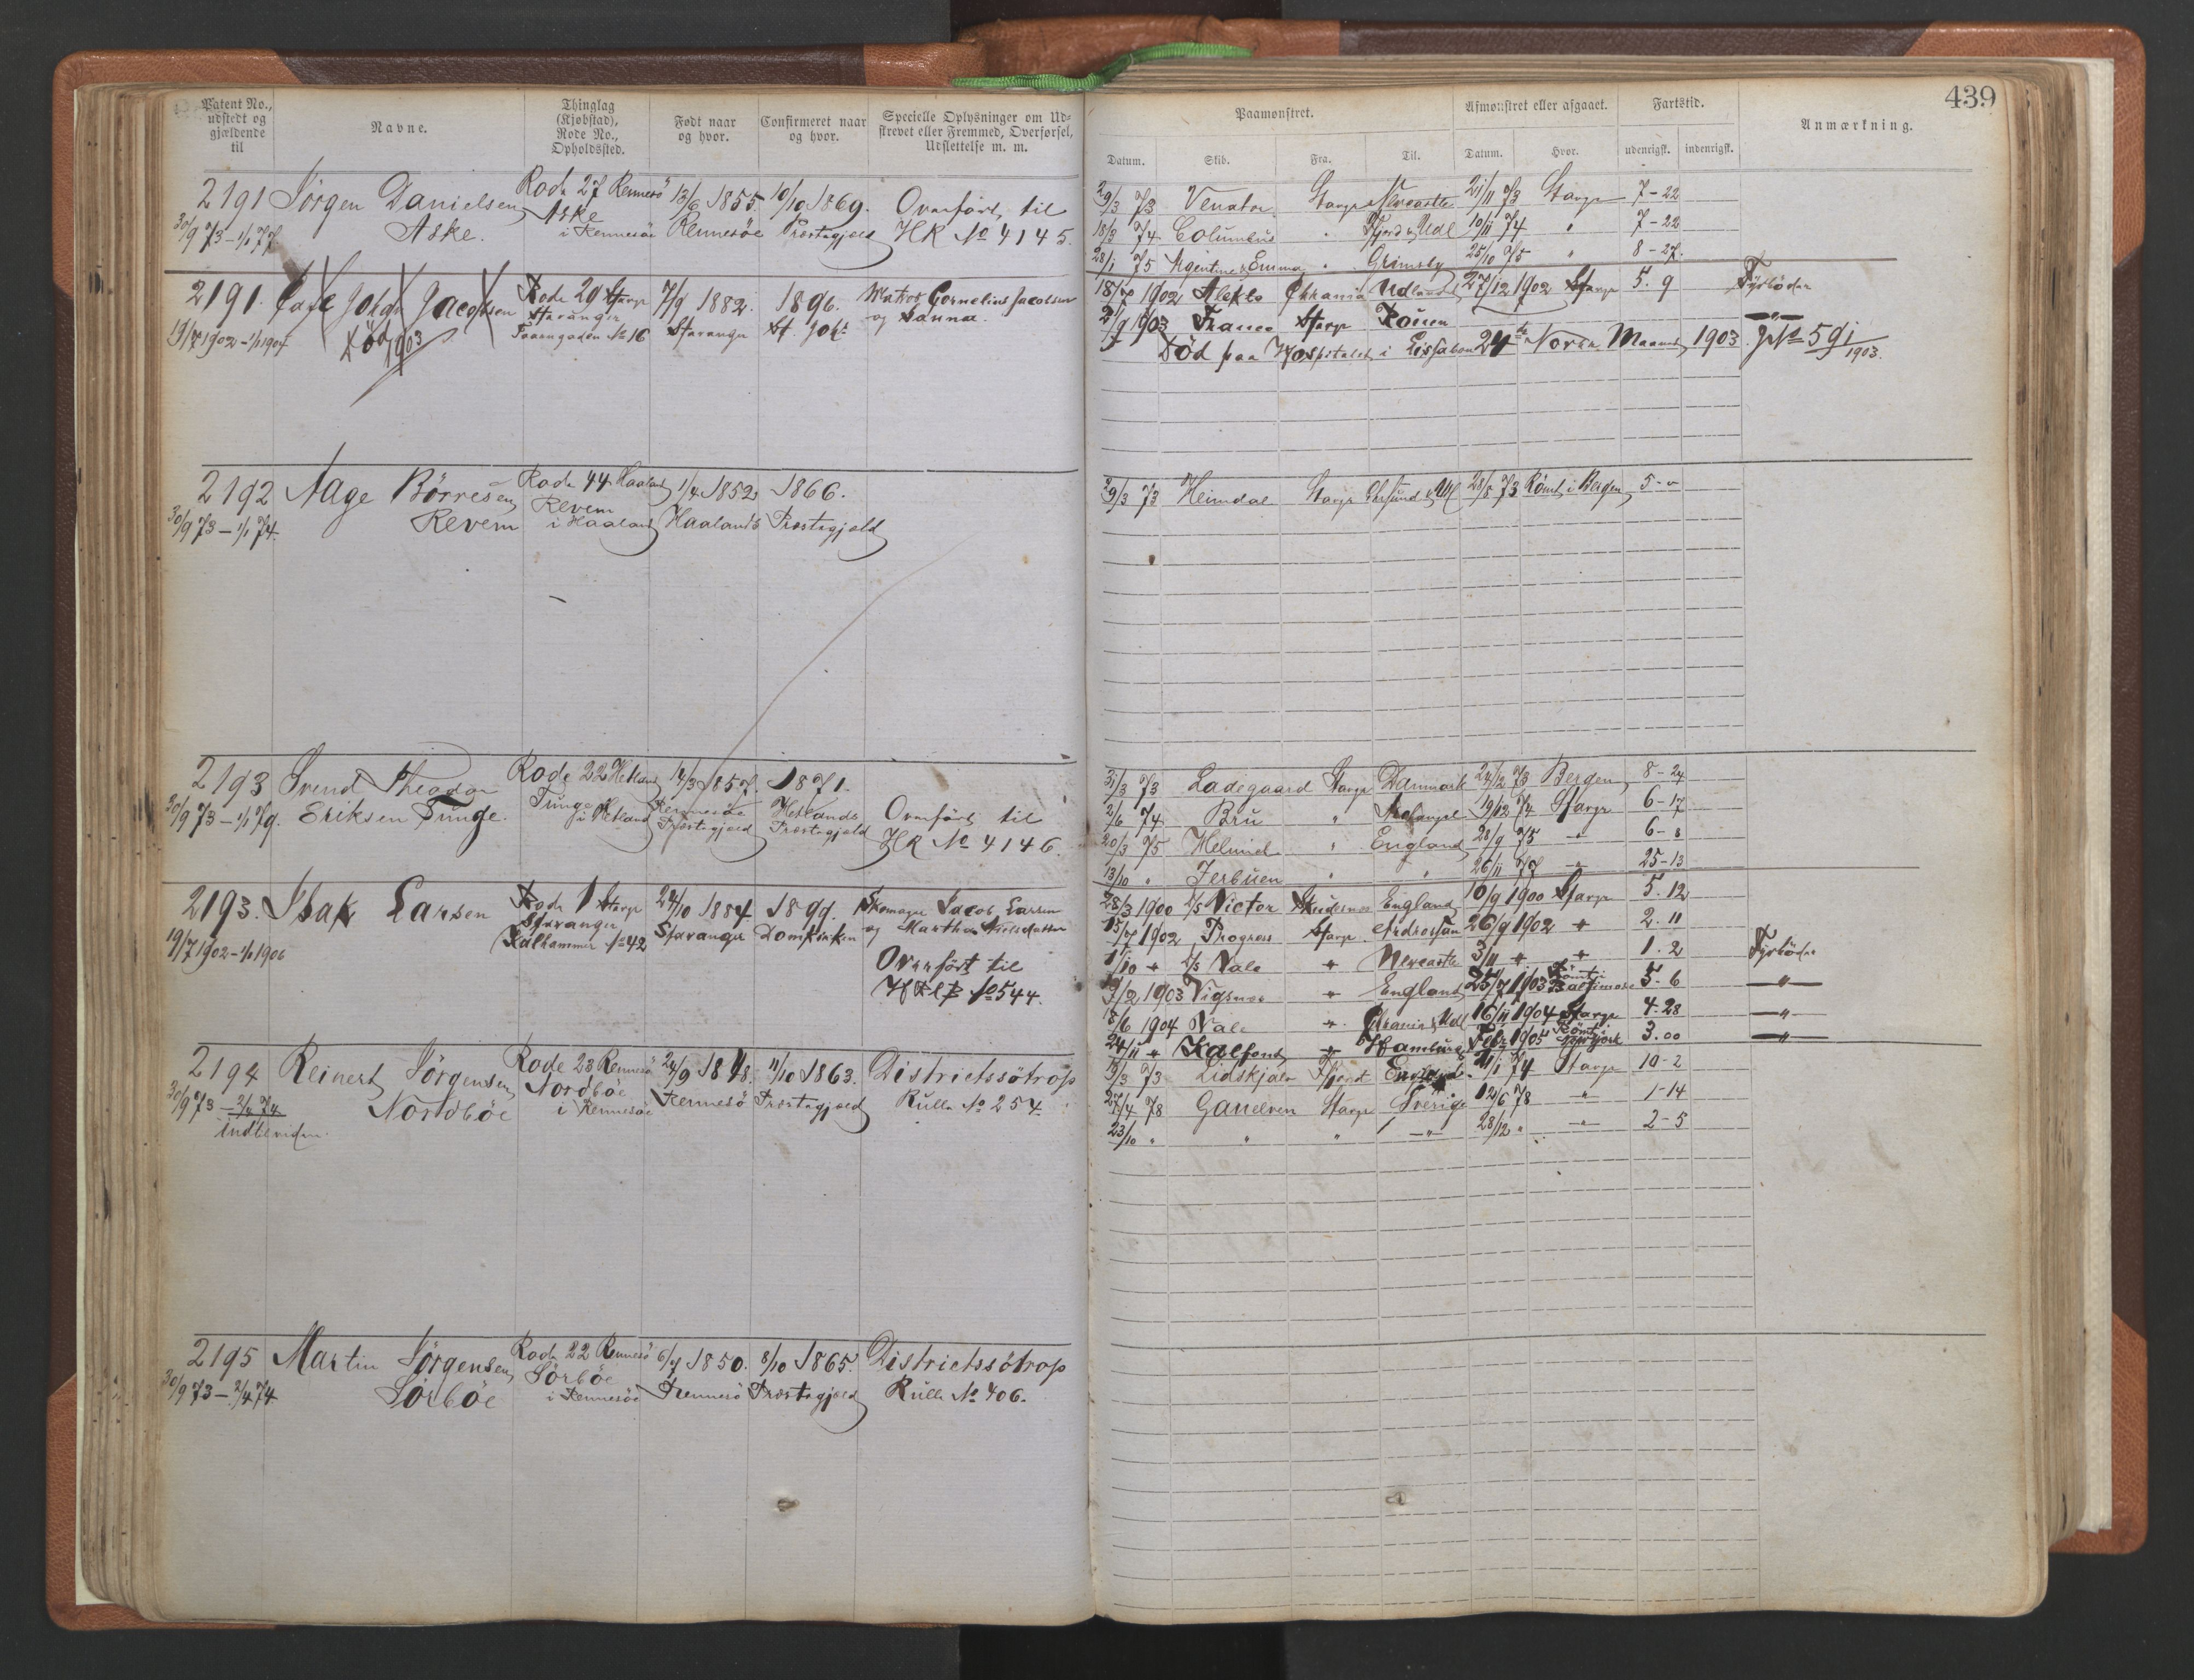 439
Patent No., udstedt og gjældende til
Navne.
Thinglag (Kjøbstad), Rode No., Opholdssted.
Født naar og hvor.
Confirmeret naar og hvor.
Specielle Oplysninger om Udskrevet eller Fremmed, Overførsel, Udslettelse m. m.
Paamønstret.
Afmønstret eller afgaaet.
Fartstid.
Anmærkning.
Datum. Skib. Fra. Til. Datum. Hvor. udenrigsk. indenrigsk.
2191 Jörgen Danielsen Rode 27 Rennesö 13/6 1855. 10/10 1869. Overført til
30/9 73 – 1/1 77. Aske. Aske i Rennesöe Rennesöe Præstegjeld HR No 4145.
29/3 73 Venator Stavgr Newcastle 21/11 73 Stavgr 7 – 22
18/3 74 Columbus " Fjord & Udl 10/11 74 " 7 – 22
28/1 75 Argentine & Emma " Grimsby 25/10 75 " 8 – 27.
2191. Carl Johan Jacobsen Rode 29 Stavgr 7/9 1882. 1896. Matros Cornelius Jacobsen
19/7 1902 – 1/1 1907 Död 1903 Stavanger Stavanger St. Joh: og Hanna.
18/7 1902 Alekto Chrania Udlandet 27/12 1902 Stavgr 5. 9 Fyrböder
2/9 1903 Franco Stavgr Rouen
Död paa Hospitalet i Lissabon 24de Novbr Maaned 1903. JNo 591/1903.
2192 Aage Börresen Rode 44 Haaland 1/4 1852 1866.
30/9 73 – 1/1 74. Revem Revem i Haaland Haalands Præstegjeld
29/3 73 Heimdal Stavgr Egersund & Udl 28/8 73 Römt i Bergen 5 – "
2193 Svend Theodor Rode 22 Hetland 14/3 1857. 1871.
30/9 73 – 1/1 79. Eriksen Tunge. Tunge i Hetland Rennesöe Præstegjeld Hetlands Præstegjeld Overført til HR No 4146.
31/3 73 Ladegaard Stavgr Danmark 24/12 73 Bergen 8 – 24
2/6 74 Bru " 19/12 74 Stavgr 6 – 17
20/3 75 " England 28/9 75 " 6 – 8
13/10 " Jerbuen " " 26/11 77 " 25 – 13
2193. Isak Larsen Rode 1 Stavgr 24/10 1884. 1899. Skomager Jacob Larsen
19/7 1902 – 1/1 1906 Stavanger Kalhammer No 42 Stavanger Domkirken og Martha Nielsdatter
Overført til
HRlB No 544.
28/3 1900 D/S Victor Skudesnes England 10/9 1900 Stavgr 5. 12
15/7 1902 Progress Stavgr Ardrossan 26/9 1902 " 2. 11
1/10 " D/S Vale " Newcastle 3/11 " " 1. 2 Fyrböder
19/2 1903 Vigsnes " England 25/7 1903 Römt i Baltimore 5. 6 "
18/6 1904 Vale " Chrania & Udl 16/11 1904 Stavgr 4. 28 "
24/11 " Kalfond " Hamburg Febr 1905 Römt i New York 3. 00 "
2194 Reinert Jörgensen Rode 23 Rennesö 24/9 1848. 11/10 1863. Districtssötrop
30/9 73 – 2/4 74 Indtil viden. Nordböe Nordböe i Rennesöe Rennesö Præstegjeld Rulle No 254.
15/3 73 Lidskjalv Fjord England 21/1 74 Stavgr 10 – 2
27/4 78 Ganelven Stavgr Sverige 12/6 78 " 1 – 14
23/10 " " " " 28/12 " " 2 – 5
2195 Martin Jörgensen Rode 22 Rennesö 6/7 1850. 8/10 1865. Districtssötrop
30/9 73 – 2/4 74 Sörböe Sörböe i Rennesöe Rennesö Præstegjeld Rulle No 406.